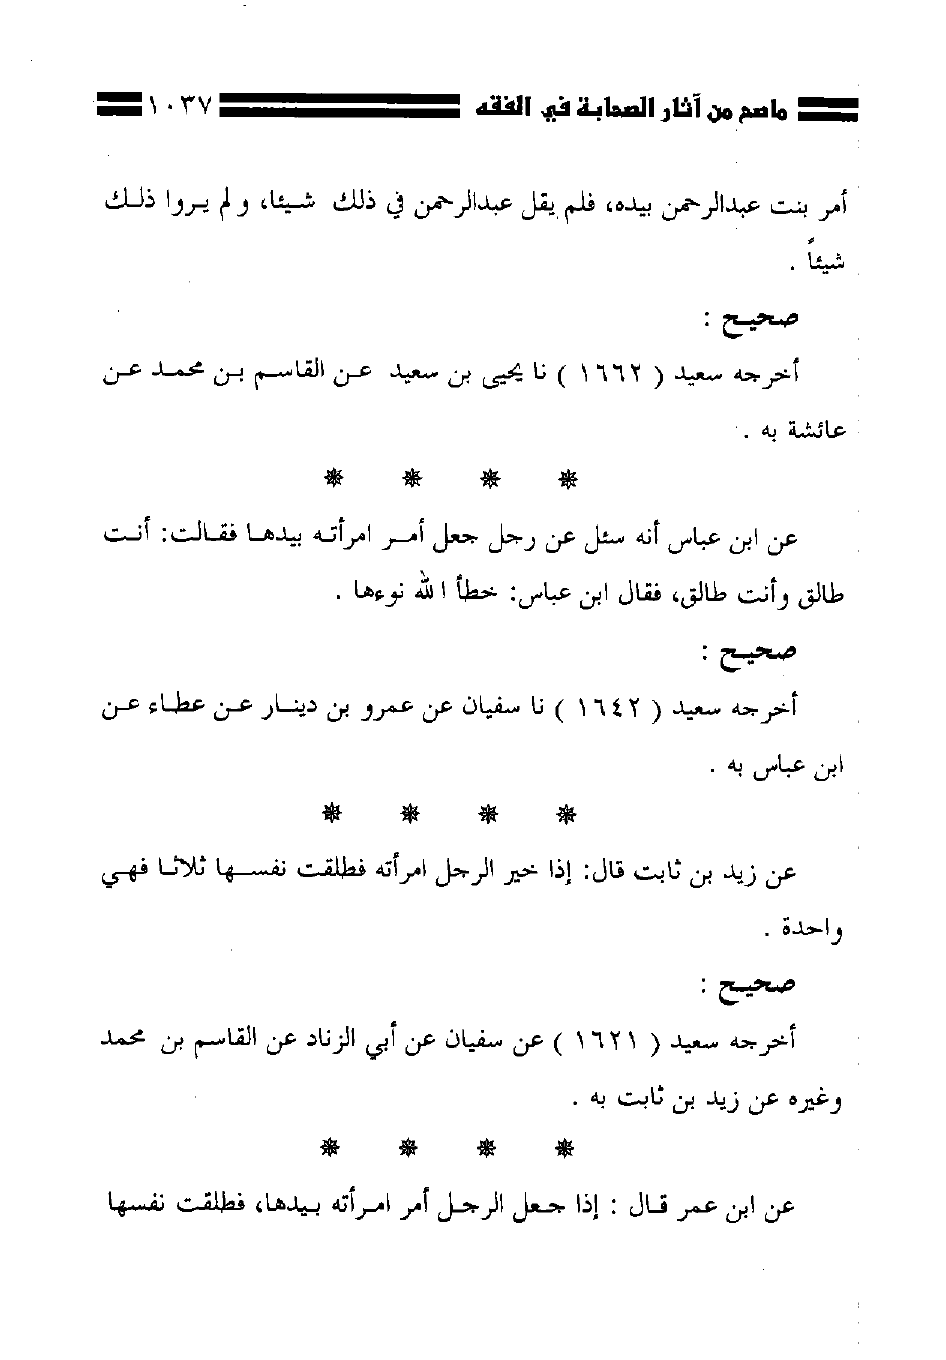 ماصح من آثار الصحابة في الفقه ١٠٣٧
أمر بنت عبدالرحمن بيده، فلم يقل عبدالرحمن في ذلك شيئا، و لم يروا ذلك
شيئاً .
صحيح :
أخرجه سعيد ( ١٦٦٢ ) نا يحيى بن سعيد عن القاسم بن محمد عن
عائشة به .
❋ ❋ ❋ ❋
عن ابن عباس أنه سئل عن رجل جعل أمر امرأته بيدها فقالت: أنت
طالق وأنت طالق، فقال ابن عباس: خطأ الله نوءها .
صحيح :
أخرجه سعيد ( ١٦٤٢ ) نا سفيان عن عمرو بن دينار عن عطاء عن
ابن عباس به .
❋ ❋ ❋ ❋
عن زيد بن ثابت قال: إذا خير الرجل امرأته فطلقت نفسها ثلاثا فهي
واحدة .
صحيح :
أخرجه سعيد ( ١٦٢١ ) عن سفيان عن أبي الزناد عن القاسم بن محمد
وغيره عن زيد بن ثابت به .
❋ ❋ ❋ ❋
عن ابن عمر قال : إذا جعل الرجل أمر امرأته بيدها، فطلقت نفسها